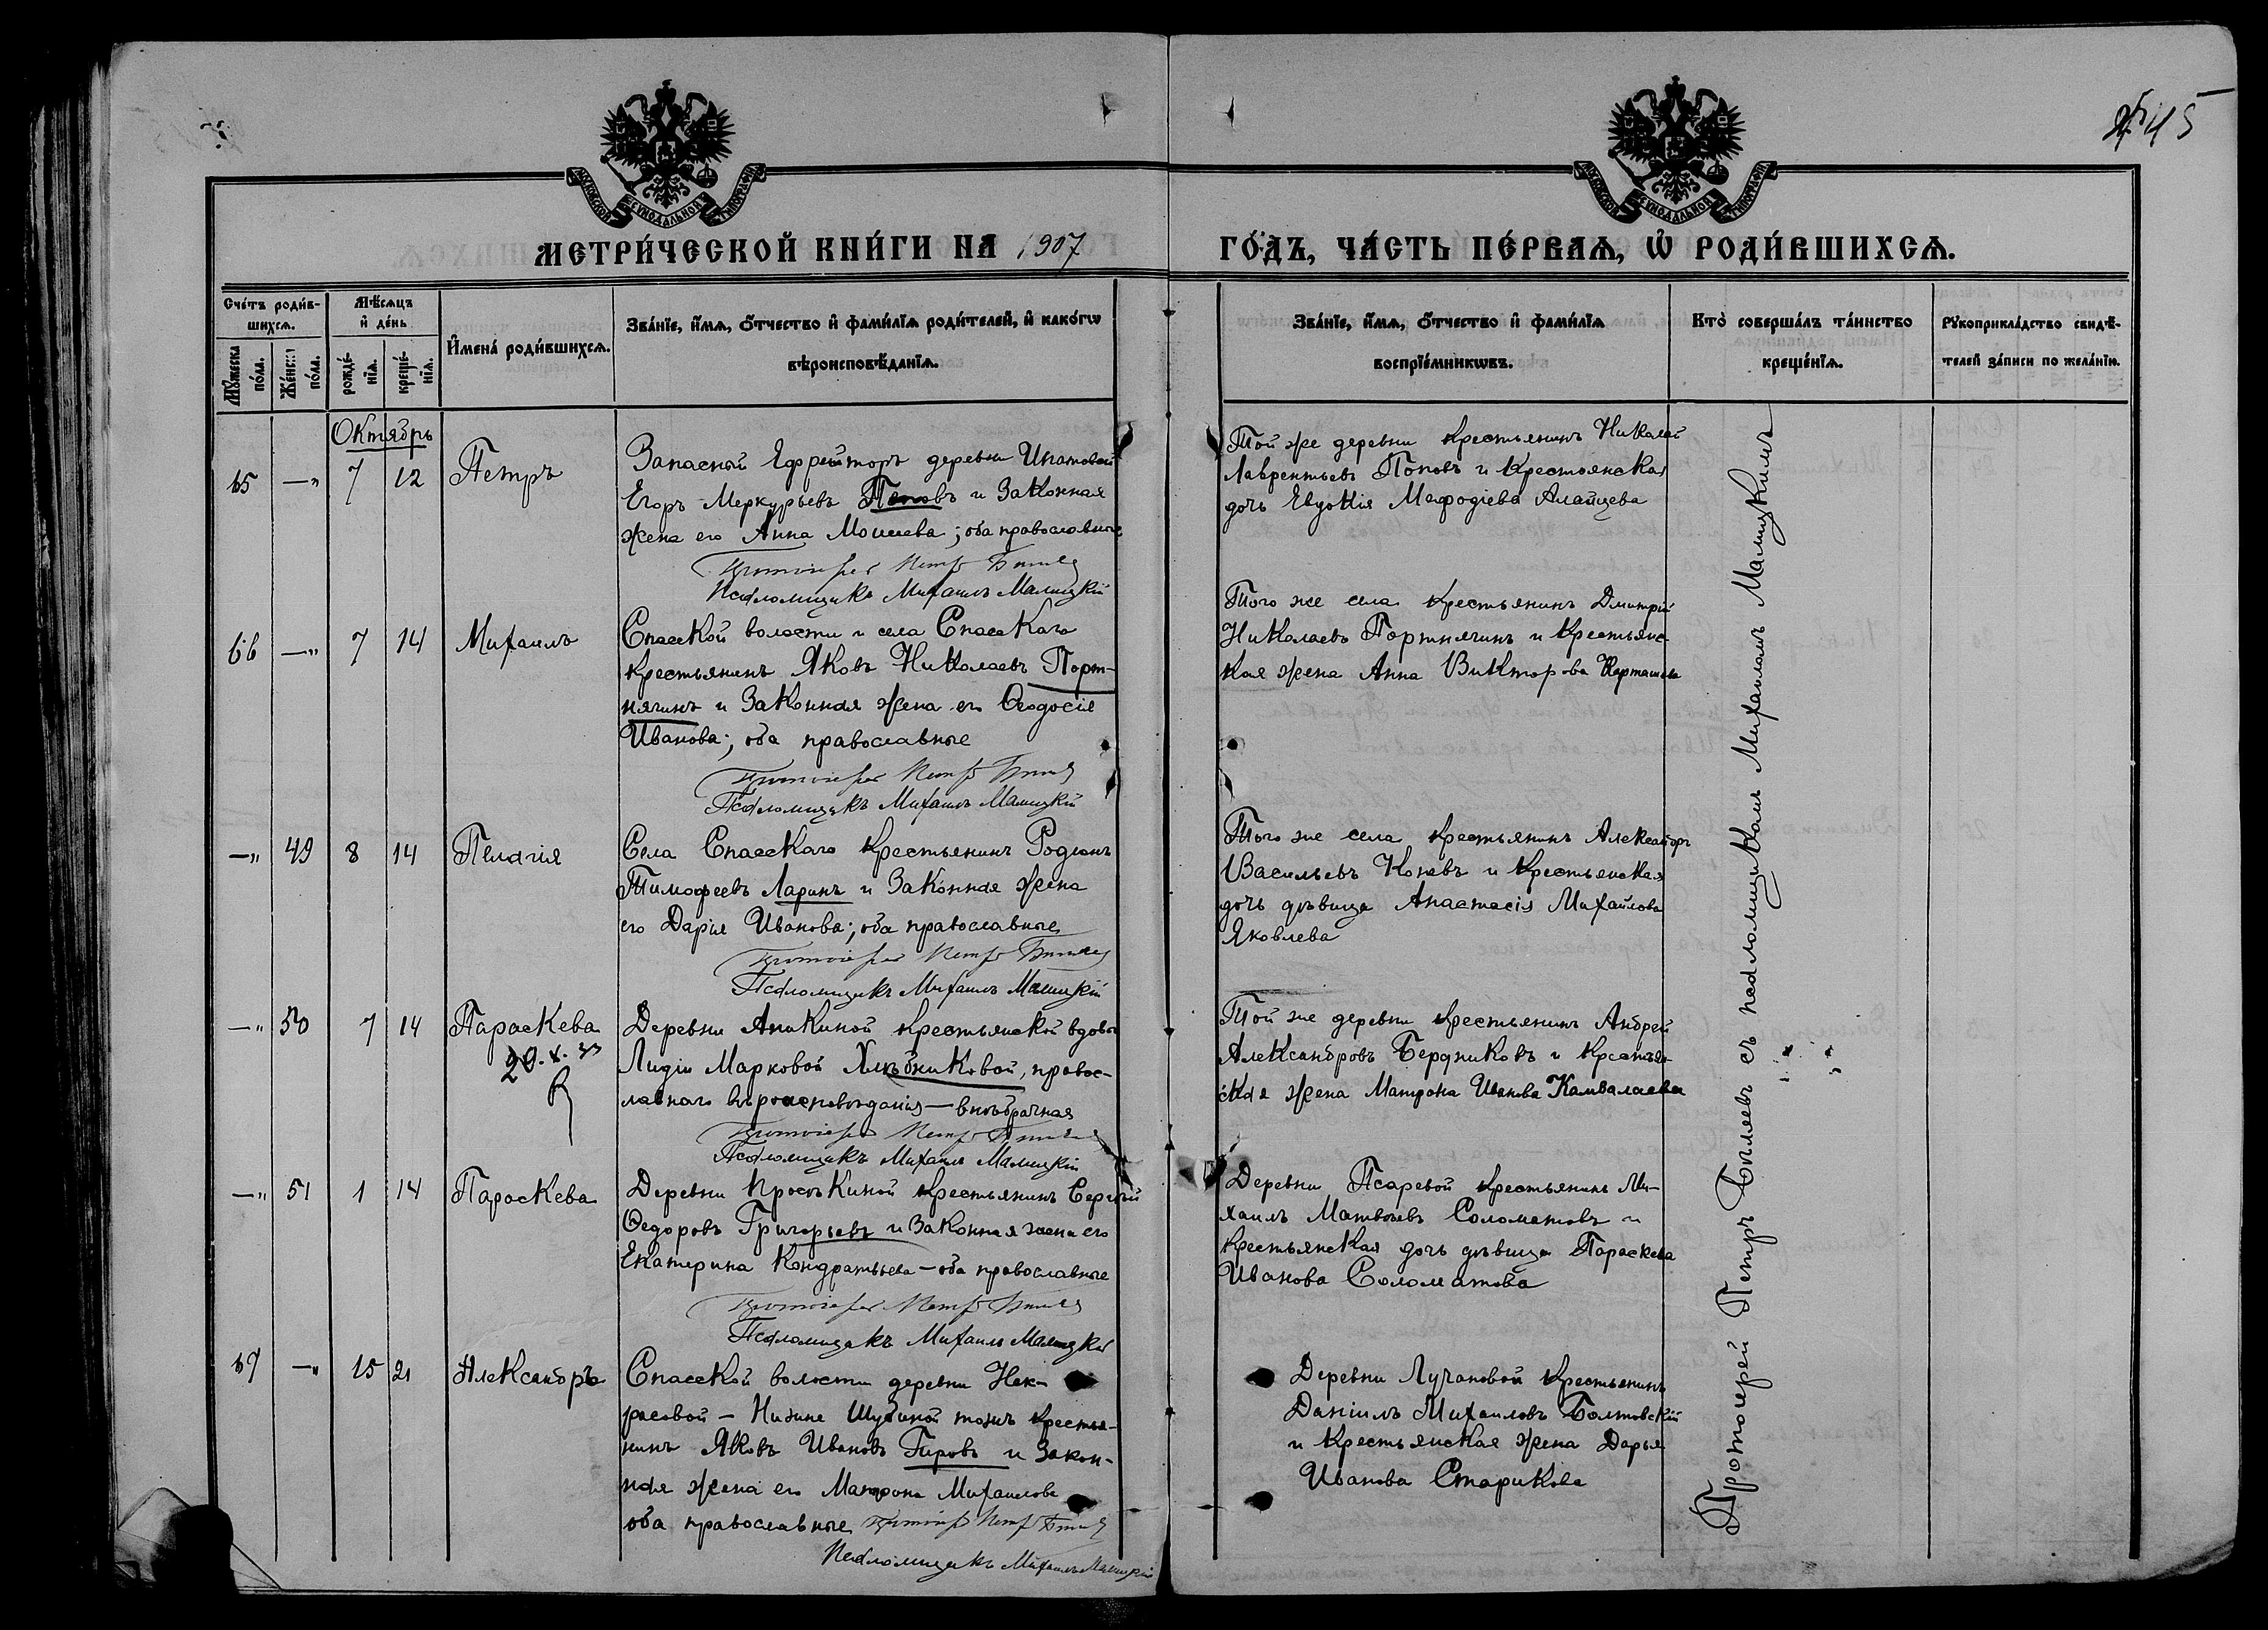 45
МОСКОВСКОЙ СѴНОДАЛЬНОЙ ТИПОГРАФІИ
МОСКОВСКОЙ СѴНОДАЛЬНОЙ ТИПОГРАФІИ
МЕТРИ́ЧЕСКОЙ КНИ́ГИ НА 1907
ГО́ДЪ, ЧА́СТЬ ПЕ́РВАѦ, Ѡ҆ РОДИ́ВШИХСѦ.
Сче́тъ роди́в-
шихсѧ.
Мꙋ́жеска по́ла.
Же́нска по́ла.
Мѣ́сѧцъ
и҆ де́нь
рожде́-нїѧ.
креще́-нїѧ.
И҆мена̀ роди́вшихсѧ.
Зва́нїе, и҆́мѧ, ѻ҆́тчество и҆ фами́лїѧ роди́телей, и҆ како́гѡ
вѣроисповѣ́данїѧ.
Зва́нїе, и҆́мѧ, ѻ҆́тчество и҆ фами́лїѧ
воспрїе́мникѡвъ.
Кто̀ соверша́лъ та́инство
креще́нїѧ.
Рꙋкоприкла́дство свидѣ́-
телей за́писи по жела́нїю.
Октябрь
65 —„ 7 12 Петръ
Запасной Ефрейторъ деревни Ипатовой
Егоръ Меркурьевъ Поповъ и законная
жена его Анна Моисеева; оба православные
Протоіерей Петръ Бѣляевъ
Псаломщикъ Михаилъ Малицкій
Той же деревни крестьянинъ Николай
Лаврентьевъ Поповъ и крестьянская
дочь Евдокія Мефодіева Алайцева
66 —„ 7 14 Михаилъ
Спасской волости и села Спасскаго
крестьянинъ Яковъ Николаевъ Порт-
нягинъ и законная жена его Ѳеодосія
Иванова; оба православные
Протоіерей Петръ Бѣляевъ
Псаломщикъ Михаилъ Малицкій
Того же села крестьянинъ Дмитрій
Николаевъ Портнягинъ и крестьянс-
кая жена Анна Викторова Карташева
—„ 49 8 14 Пелагія
Села Спасскаго крестьянинъ Родіонъ
Тимофеевъ Ларинъ и законная жена
его Дарія Иванова; оба православные
Протоіерей Петръ Бѣляевъ
Псаломщикъ Михаилъ Малицкій
Того же села крестьянинъ Александръ
Васильевъ Коневъ и крестьянская
дочь дѣвица Анастасія Михайлова
Яковлева
—„ 50 7 14 Параскева
Деревни Аникиной крестьянской вдовы
Лидіи Марковой Хлѣбниковой, правос-
лавнаго вѣроисповѣданія — внѣбрачная
Протоіерей Петръ Бѣляевъ
Псаломщикъ Михаилъ Малицкій
Той же деревни крестьянинъ Андрей
Александровъ Бердниковъ и крестьян-
ская жена Матрона Иванова Камвалаева
—„ 51 1 14 Параскева
Деревни Просѣкиной крестьянинъ Сергѣй
Ѳедоровъ Григорьевъ и законная жена его
Екатерина Кондратьева — оба православные
Протоіерей Петръ Бѣляевъ
Псаломщикъ Михаилъ Малицкій
Деревни Псаревой крестьянинъ Ми-
хаилъ Матвѣевъ Соломатовъ и
крестьянская дочь дѣвица Параскева
Иванова Соломатова
67 —„ 15 21 Александръ
Спасской волости деревни Нек-
расовой — Нижне Шубиной тожъ крестья-
нинъ Яковъ Ивановъ Гировъ и закон-
ная жена его Матрона Михаилова
оба православные Протоіерей Петръ Бѣляевъ
Псаломщикъ Михаилъ Малицкій
Деревни Лучановой крестьянинъ
Даніилъ Михаиловъ Болтовскій
и крестьянская жена Дарья
Иванова Старикова
Протоіерей Петръ Бѣляевъ съ псаломщикомъ Михаиломъ Малицкимъ